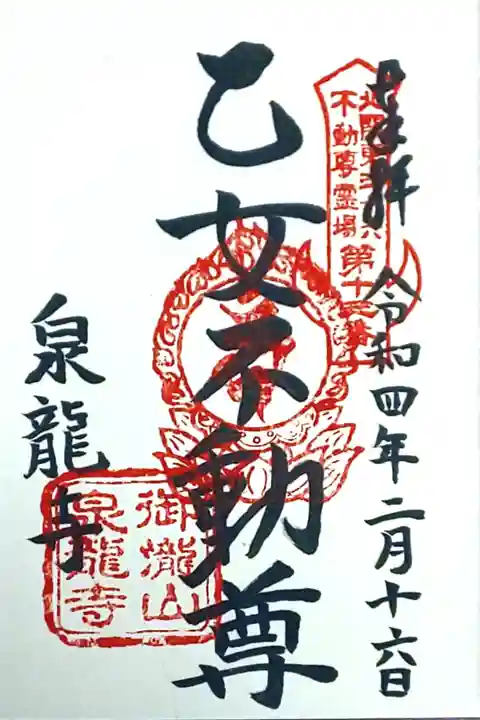 奉拝 令和四年二月十六日
北関東三十六
不動尊霊場第十四番
乙女不動尊
泉龍寺
御瀧山
泉龍寺